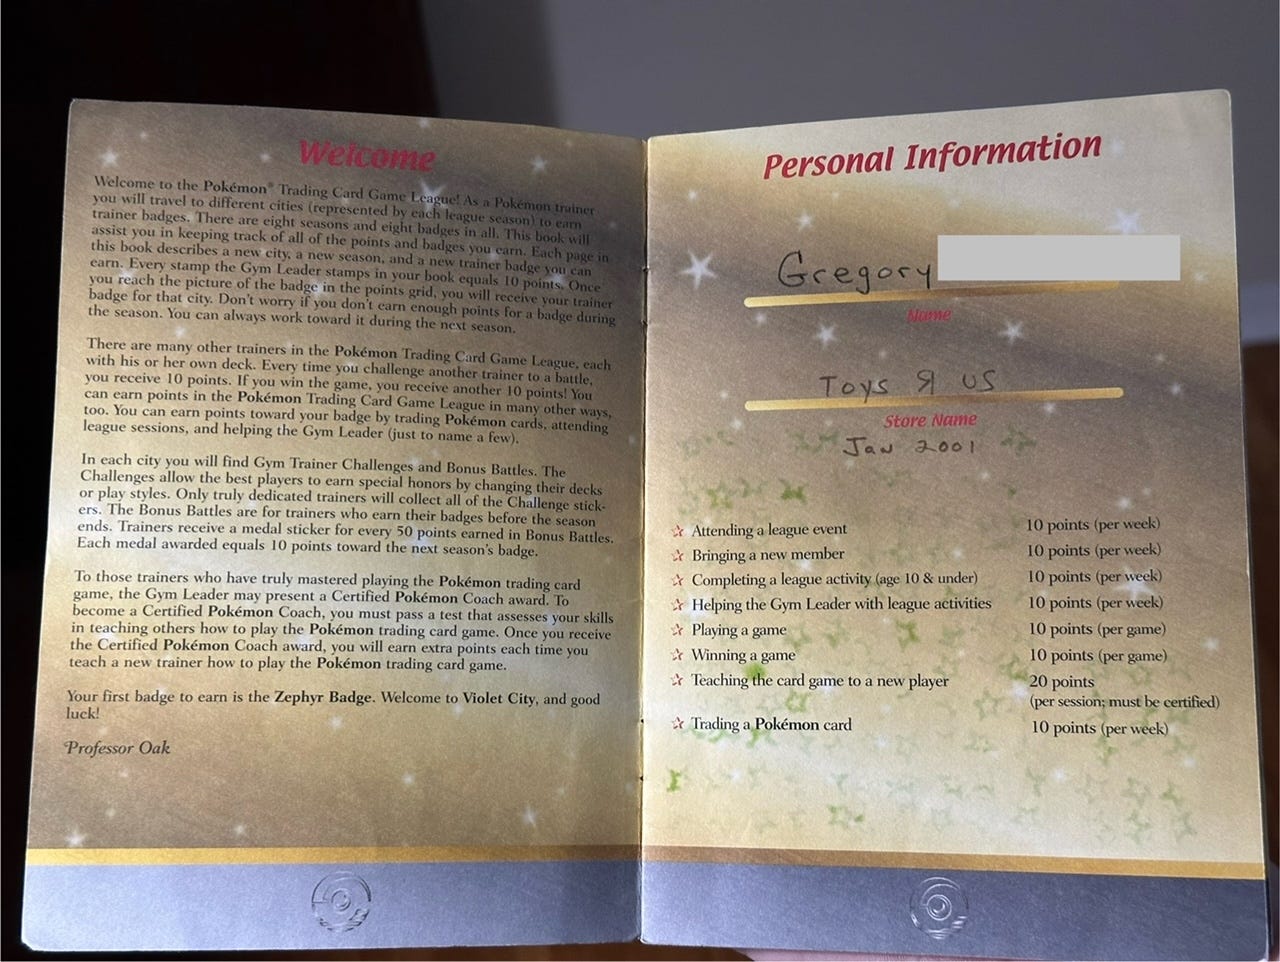 Welcome
Welcome to the Pokémon® Trading Card Game League! As a Pokémon trainer
you will travel to different cities (represented by each league season) to earn
trainer badges. There are eight seasons and eight badges in all. This book will
assist you in keeping track of all of the points and badges you earn. Each page in
this book describes a new city, a new season, and a new trainer badge you can
earn. Every stamp the Gym Leader stamps in your book equals 10 points. Once
you reach the picture of the badge in the points grid, you will receive your trainer
badge for that city. Don't worry if you don't earn enough points for a badge during
the season. You can always work toward it during the next season.
There are many other trainers in the Pokémon Trading Card Game League, each
with his or her own deck. Every time you challenge another trainer to a battle,
you receive 10 points. If you win the game, you receive another 10 points! You
can earn points in the Pokémon Trading Card Game League in many other ways,
too. You can earn points toward your badge by trading Pokémon cards, attending
league sessions, and helping the Gym Leader (just to name a few).
In each city you will find Gym Trainer Challenges and Bonus Battles. The
Challenges allow the best players to earn special honors by changing their decks
or play styles. Only truly dedicated trainers will collect all of the Challenge stick-
ers. The Bonus Battles are for trainers who earn their badges before the season
ends. Trainers receive a medal sticker for every 50 points earned in Bonus Battles.
Each medal awarded equals 10 points toward the next season's badge.
To those trainers who have truly mastered playing the Pokémon trading card
game, the Gym Leader may present a Certified Pokémon Coach award. To
become a Certified Pokémon Coach, you must pass a test that assesses your skills
in teaching others how to play the Pokémon trading card game. Once you receive
the Certified Pokémon Coach award, you will earn extra points each time you
teach a new trainer how to play the Pokémon trading card game.
Your first badge to earn is the Zephyr Badge. Welcome to Violet City, and good
luck!
Professor Oak
Personal Information
Gregory
Name
Toys Я US
Store Name
Jan 2001
Attending a league event 10 points (per week)
Bringing a new member 10 points (per week)
Completing a league activity (age 10 & under) 10 points (per week)
Helping the Gym Leader with league activities 10 points (per week)
Playing a game 10 points (per game)
Winning a game 10 points (per game)
Teaching the card game to a new player 20 points
(per session; must be certified)
Trading a Pokémon card 10 points (per week)